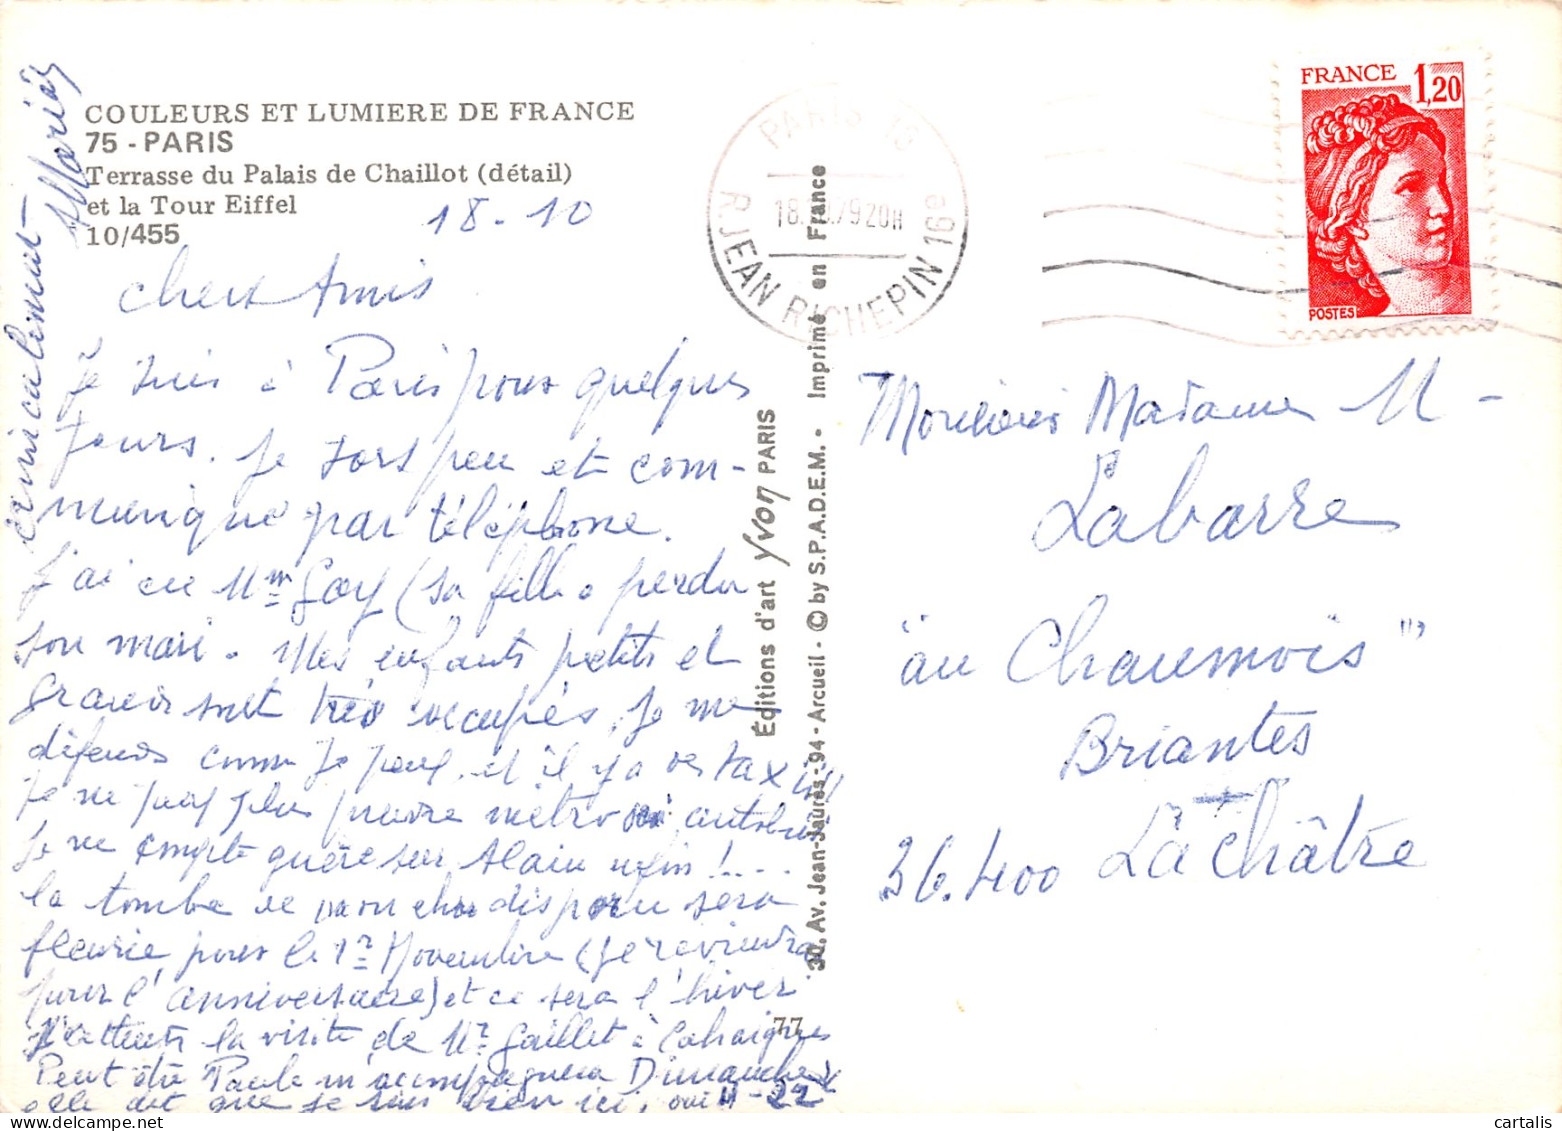 COULEURS ET LUMIERE DE FRANCE
75 - PARIS
Terrasse du Palais de Chaillot (détail)
et la Tour Eiffel
10/455
18-10
Chers Amis
Je suis à Paris pour quelques
jours. Je sors peu et com-
munique par téléphone.
J'ai eu Mme Goy (sa fille a perdu
son mari. Mes enfants petits et
grands sont très occupés. Je me
défends comme je peux et il y a les taxis
Je ne peux plus prendre métro ou autobus
Je ne compte guère sur Alain
la tombe de mon cher disparu sera
fleurie pour le 1er Novembre (je reviendrai
pour l'anniversaire) et ce sera l'hiver
J'attends la visite de Mr Gaillet à
Peut être Paule m'accompagnera Dimanche
elle dit que je suis bien ici,
amicalement
PARIS 16
18.10.79 20H
R. JEAN RICHEPIN 16e
Éditions d'art Yvon PARIS
30, Av. Jean-Jaurès - 94 - Arcueil - © by S.P.A.D.E.M. - Imprimé en France
77
FRANCE 1,20
POSTES
Madame M-
Labarre
"au Chaumois"
Briantes
36.400 La Châtre
cartalis